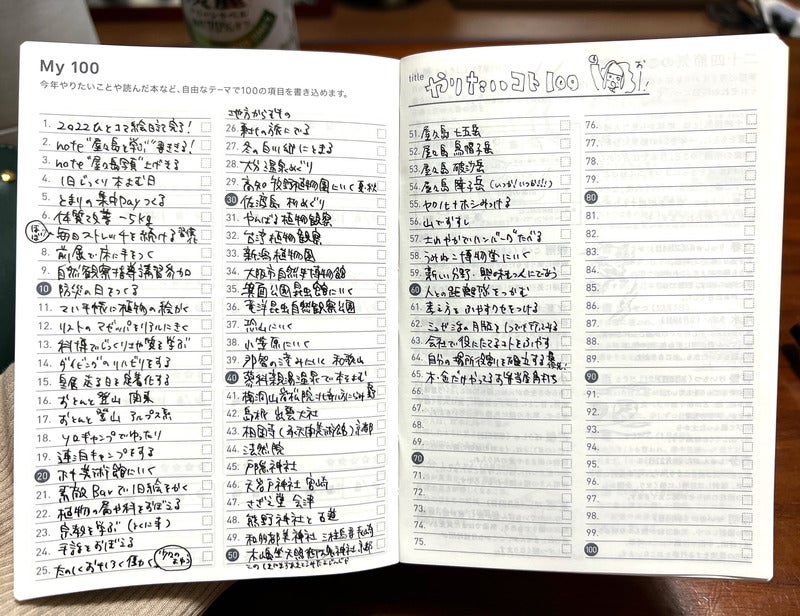 My 100
今年やりたいことや読んだ本など、自由なテーマで100の項目を書き込めます。
1. 2022ひとコマ絵日記で完了!
2. note "屋久島を学ぶ" 書ききる!
3. note "屋久島写真" 上げきる
4. 1日じっくり本よむ日
5. とまりの集中Dayつくる
6. 体質改善 -5kg
7. ほぼ 毎日ストレッチを続ける 習慣化
8. 前屈で床に手をつく
9. 自然観察指導講習参加
10 防災の日をつくる
11. てい手帳に植物の絵かく
12. リストのマゼッパをリアルにきく
13. 科博でじっくり地質を学ぶ
14. ダイビングのリハビリをする
15. 走る日を定着化する
16. おとんと登山 関東
17. おとんと登山 アルプス系
18. ソロキャンプでゆったり
19. 連泊キャンプをする
20 ホキ美術館にいく
21. 素敵Barで1日絵をかく
22. 植物の属や科をおぼえる
23. 宗教を学ぶ (とくに寺)
24. 手話をおぼえる
25. たのしくおもしろく働く
地方からその
26. 旅にでる
27. 冬の白川郷にとまる
28. 大分温泉めぐり
29. 高知 牧野植物園にいく 夏・秋
30 佐渡島 杉めぐり
31. やんばる植物観察
32. 台湾植物観察
33. 新潟植物園
34. 大阪市自然史博物館
35. 箕面公園昆虫館にいく
36. 東洋昆虫自然観察公園
37. 恐山にいく
38. 小笠原にいく
39. 那智の滝みたい 和歌山
40 蓼科親湯温泉で本をよむ
41.
42. 島根 出雲大社
43. 相国寺(承天閣美術館)京都
44. 法然院
45. 戸隠神社
46. 天岩戸神社 宮崎
47. さざえ堂 会津
48. 熊野神社と古道
49. 和多都美神社 長崎
50
title
やりたいコト100
51. 屋久島 七五岳
52. 屋久島 烏帽子岳
53. 屋久島 破沙岳
54. 屋久島 障子岳 (いつか!いつか!!!)
55. ヤクノヒナホシみつける
56. 山でおすし
57. さわやかでハンバーグたべる
58. うみねこ博物堂にいく
59. 新しい分野・興味も人にであう
60 人との距離感をつかむ
61. 考え方をふやすクセをつける
62. ミュゼ活の月間を1つでもアップする
63. 会社で役にたてるコトをふやす
64. 自分の場所役割を確立する 最優先!
65. 水・金だけやってるお弁当屋月うち
66.
67.
68.
69.
70
71.
72.
73.
74.
75.
76.
77.
78.
79.
80
81.
82.
83.
84.
85.
86.
87.
88.
89.
90
91.
92.
93.
94.
95.
96.
97.
98.
99.
100